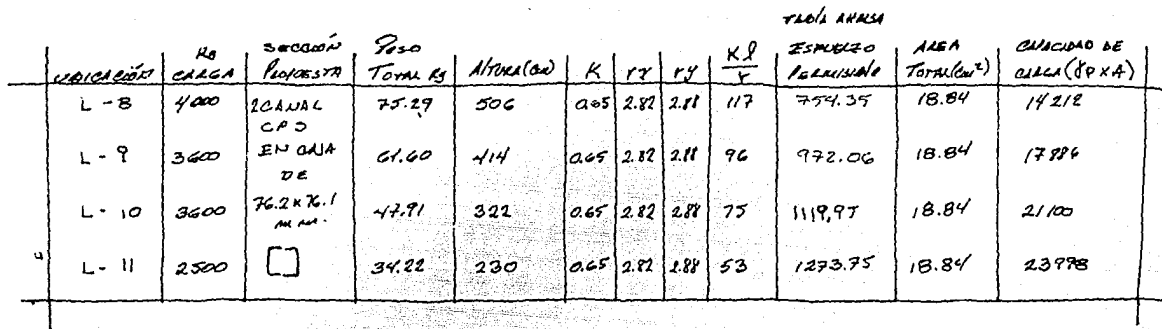 TABLA AHMSA
UBICACIÓN KG CARGA SECCIÓN PROPUESTA PESO TOTAL KG ALTURA (CM) K rx ry Kl/r ESFUERZO PERMISIBLE AREA TOTAL (cm²) CAPACIDAD DE CARGA (γP x A)
L - 8 4000 2 CANAL CPS 75.29 506 0.65 2.82 2.88 117 754.35 18.84 14212
L - 9 3600 EN CAJA DE 61.60 414 0.65 2.82 2.88 96 972.06 18.84
L - 10 3600 76.2 x 76.1 m.m. 47.91 322 0.65 2.82 2.88 75 1119.97 18.84 21100
L - 11 2500 34.22 230 0.65 2.82 2.88 53 1273.75 18.84 23998